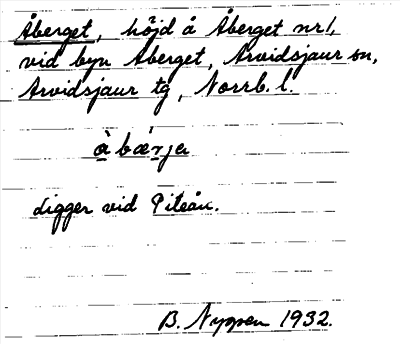 Åberget, höjd å Åberget nr 1,
vid byn Åberget, Arvidsjaur sn,
Arvidsjaur tg, Norrb. l.
ligger vid Piteån.
B. Nyppen 1932.